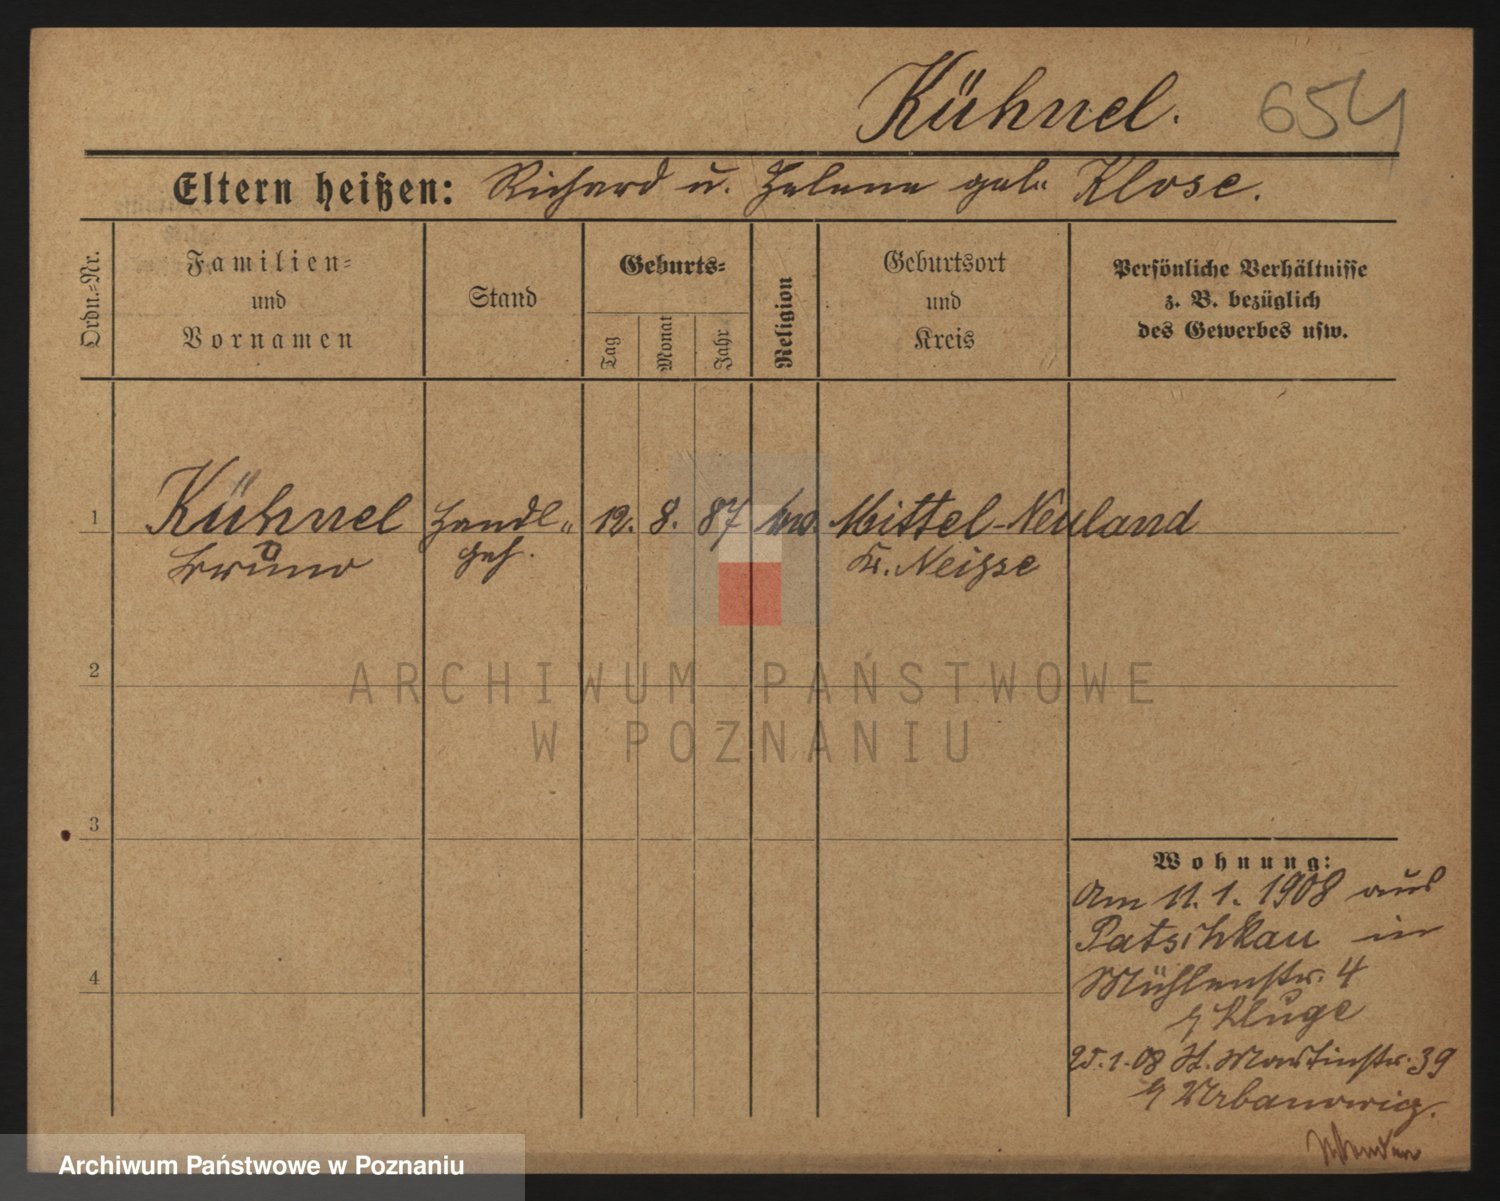 Kühnel. 654
Eltern heißen: Richard u. Helene geb. Klose.
Ordn.-Nr.
Familien-
und
Vornamen
Stand
Geburts-
Tag
Monat
Jahr
Religion
Geburtsort
und
Kreis
Persönliche Verhältnisse
z. B. bezüglich
des Gewerbes usw.
1 Kühnel Handl. 12. 8. 87 Mittel-Neuland
Bruno geh. Kr. Neisse
2
3
4
Wohnung:
Am 11. 1. 1908 aus
Patschkau in
Mühlenstr. 4
b/ Kluge
25.1.08 St. Martinstr. 39
b/ Urbanowicz.
ARCHIWUM PAŃSTWOWE
W POZNANIU
Archiwum Państwowe w Poznaniu